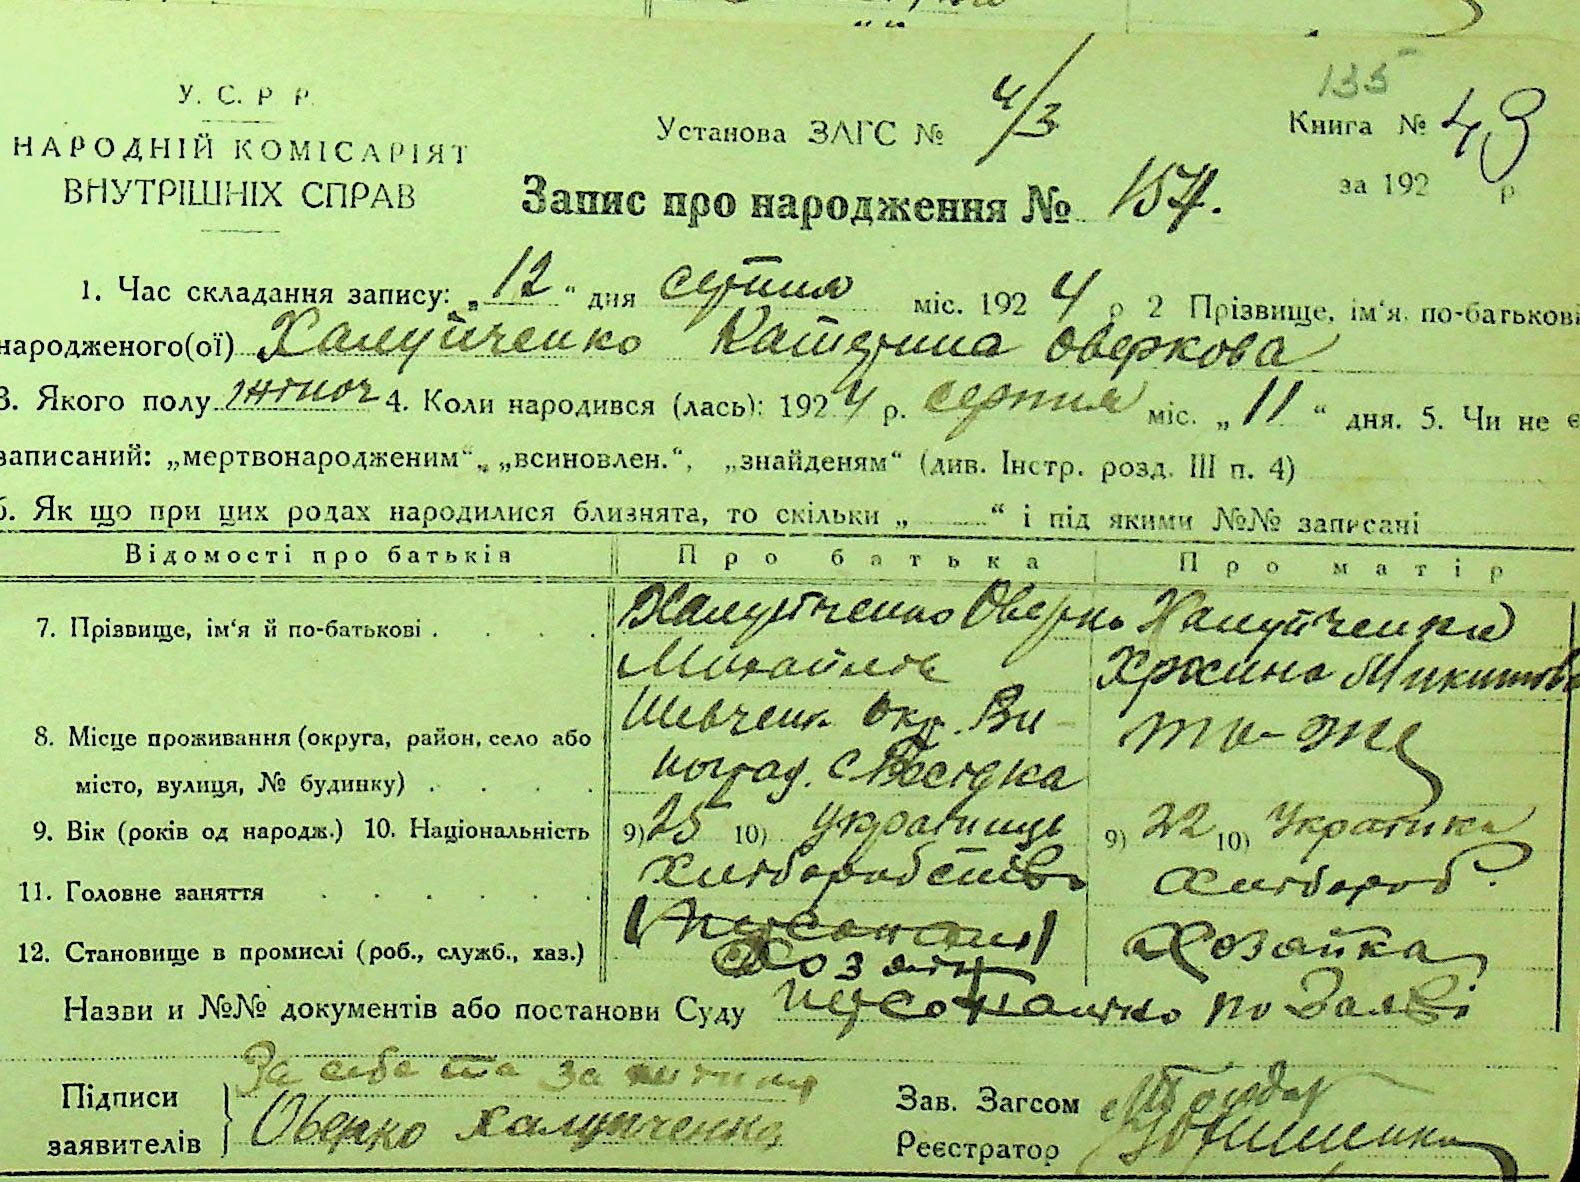 135
У. С. Р Р.
Установа ЗАГС № 4/3
Книга № 43
НАРОДНІЙ КОМІСАРІЯТ
ВНУТРІШНІХ СПРАВ
за 192 р
Запис про народження № 154.
1. Час складання запису: „12“ дня серпня міс. 192 4 р 2 Прізвище, ім‘я, по-батькові
народженого(ої) Халупченко Катерина Оверкова
3. Якого полу жіноч 4. Коли народився (лась): 192 4 р. серпня міс. „11“ дня. 5. Чи не є
записаний: „мертвонародженим“, „всиновлен.“, „знайденям“ (див. Інстр. розд. III п. 4)
6. Як що при цих родах народилися близнята, то скільки „ “ і під якими №№ записані
Відомості про батьків Про батька Про матір
7. Прізвище, ім‘я й по-батькові . . . . Халупченко Оверко Халупченко
Михайлов Микитова
8. Місце проживання (округа, район, село або Шевченк. Окр. Ви-
місто, вулиця, № будинку) . . . . ноград. с. то-же
9. Вік (років од народж.) 10. Національність 9) 25 10) Українець 9) 22 10) Українка
11. Головне заняття . . . . . . Хліборобство Хлібороб.
12. Становище в промислі (роб., служб., хаз.) Хозяїн Хозяйка
Назви и №№ документів або постанови Суду персонально по заяві
Підписи За себе та за
заявителів Оверко Халупченко
Зав. Загсом
Реєстратор